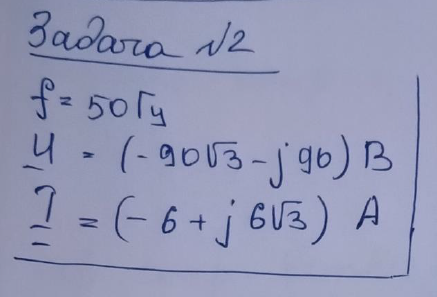 Задача №2
f = 50Гц
U = (-90√3 - j 90) В
I = (-6 + j 6√3) А